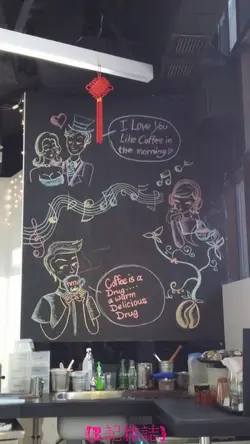 I Love You
Like Coffee in
the morning!!
Coffee is a
Drug....
a warm
Delicious
Drug